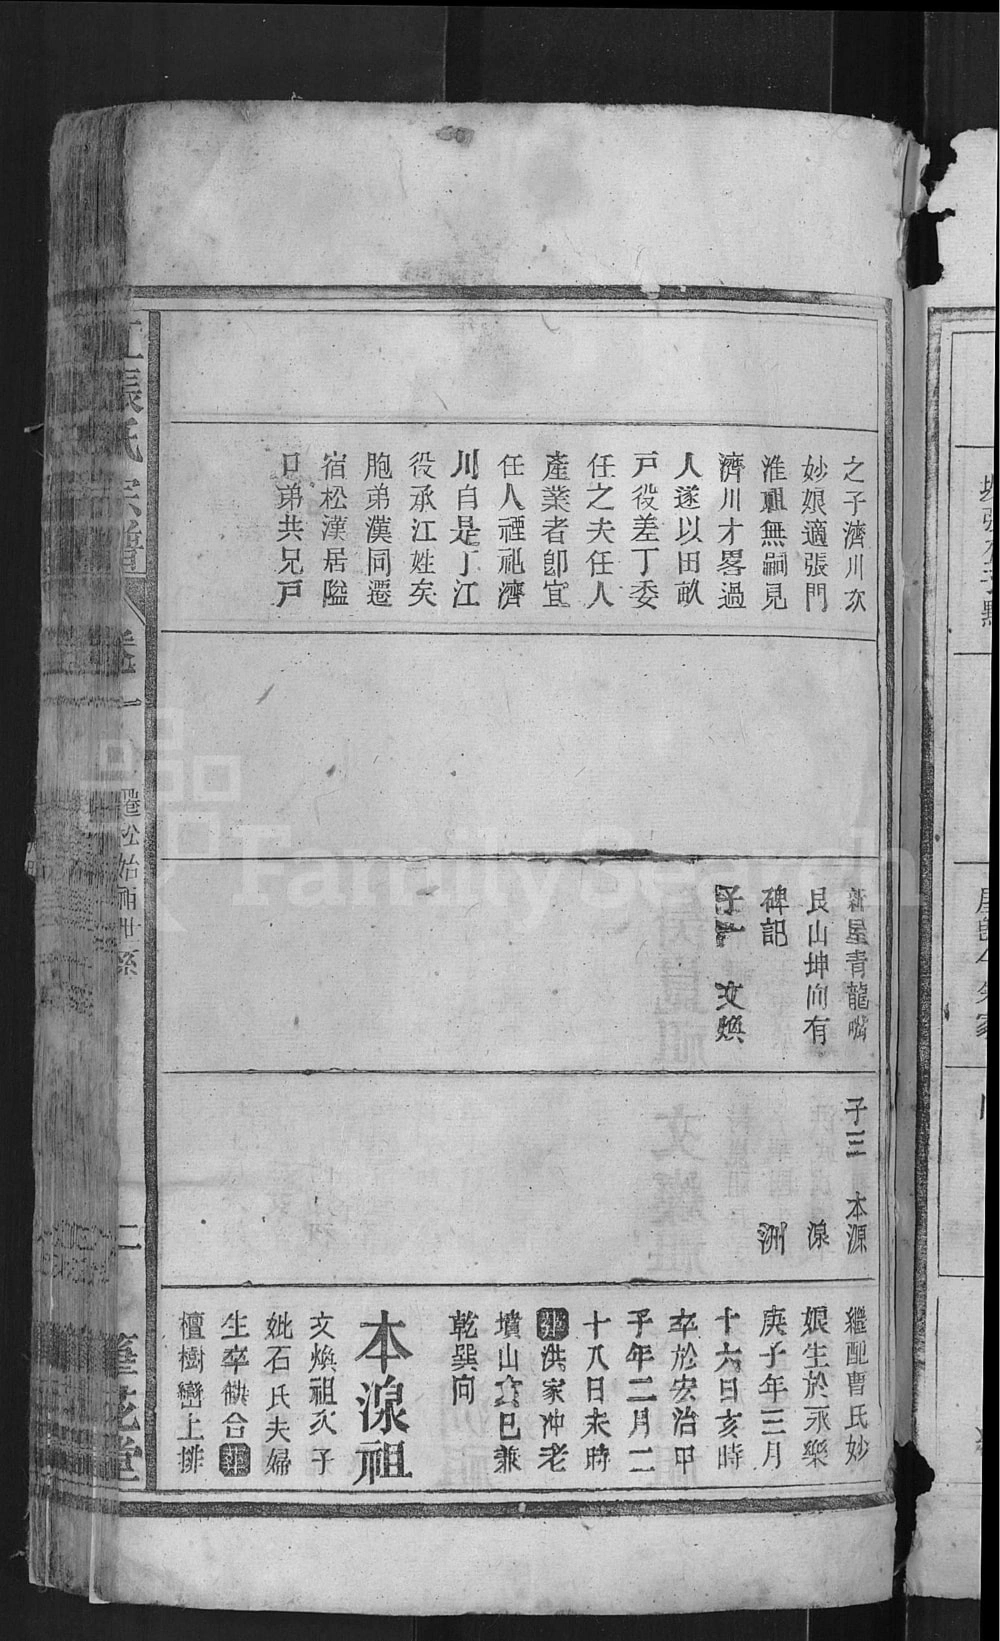 之子濟川次
妙娘適張門
淮聰無嗣見
濟川才畧過
人遂以田畝
戸役差丁委
任之夫任人
產業者卽宜
任人禋祀濟
川自是丁江
役承江姓矣
胞弟漢同遷
宿松漢居隘
口弟共兄戸
新屋青龍嘴
艮山坤向有
碑記
子一 文煥
子三 本源
湶
洲
繼配曹氏妙
娘生於永樂
庚子年三月
十六日亥時
卒於宏治甲
子年二月二
十八日未時
葬洪家冲老
墳山亥巳兼
乾巽向
本湶祖
文煥祖次子
妣石氏夫婦
生卒缺合葬
檀樹巒上排
江張氏宗譜
卷一
遷松始祖世系
二
FamilySearch